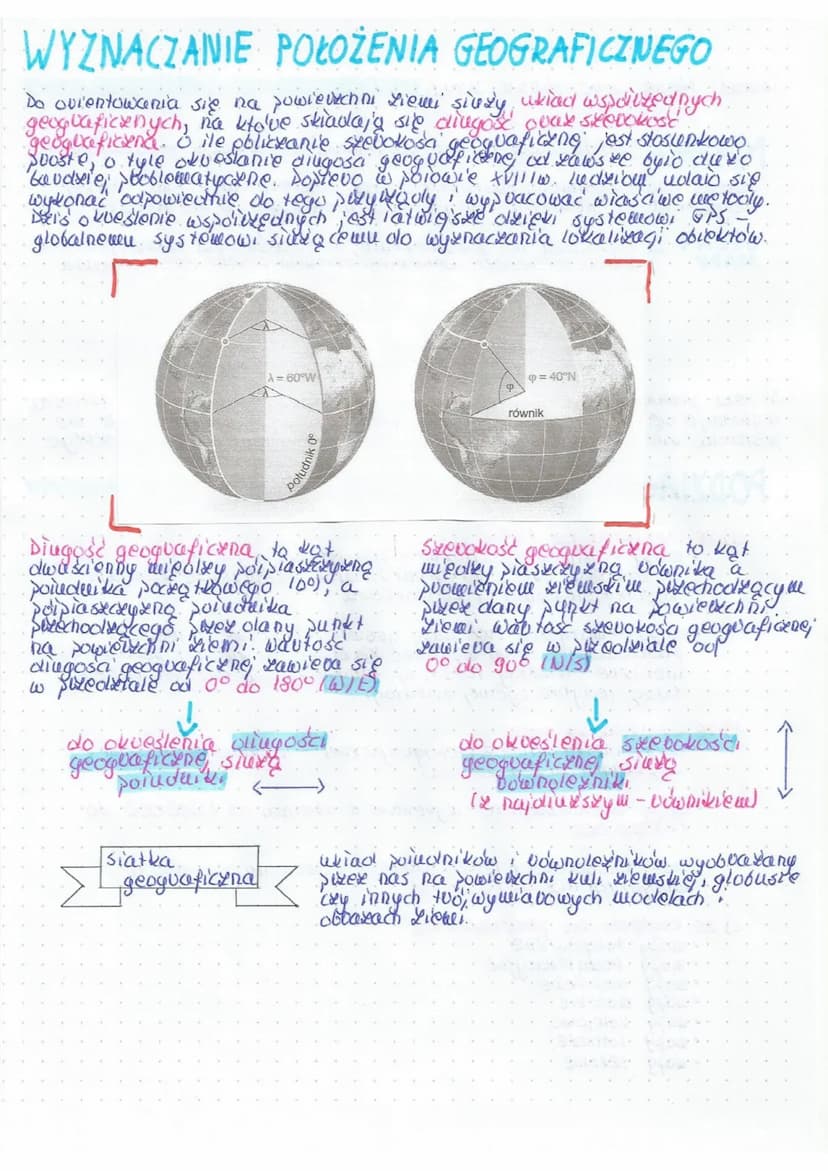 WYZNACZANIE POŁOŻENIA GEOGRAFICZNEGO
Do orientowania się na powierzchni Ziemi służy układ współrzędnych
geograficznych, na które składają się długość oraz szerokość
geograficzna. O ile obliczanie szerokości geograficznej jest stosunkowo
proste, o tyle określanie długości geograficznej od zawsze było dużo
bardziej problematyczne. Dopiero w połowie XVIII w. ludziom udało się
wykonać odpowiednie do tego przyrządy i wypracować właściwe metody.
Dziś określenie współrzędnych jest łatwiejsze dzięki systemowi GPS –
globalnemu systemowi służącemu do wyznaczania lokalizacji obiektów.
λ
λ = 60°W
λ
południk 0°
φ = 40°N
φ
równik
Długość geograficzna to kąt
dwuścienny między półpłaszczyzną
południka początkowego (0°), a
półpłaszczyzną południka
przechodzącego przez dany punkt
na powierzchni Ziemi. Wartość
długości geograficznej zawiera się
w przedziale od 0° do 180° (W/E)
Szerokość geograficzna to kąt
między płaszczyzną równika a
promieniem ziemskim przechodzącym
przez dany punkt na powierzchni
Ziemi. Wartość szerokości geograficznej
zawiera się w przedziale od
0° do 90° (N/S)
do określenia długości
geograficznej służą
południki
do określenia szerokości
geograficznej służą
równoleżniki
(z najdłuższym – równikiem)
siatka
geograficzna
układ południków i równoleżników wyobrażany
przez nas na powierzchni kuli ziemskiej, globusie
czy innych trójwymiarowych modelach i
obrazach Ziemi.